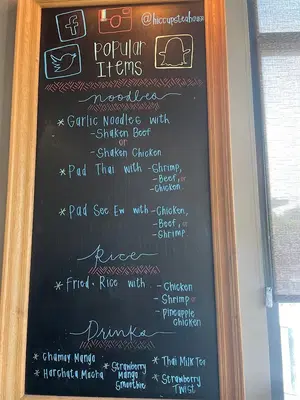 @hiccupsteahouse
Popular
Items
noodles
* Garlic Noodles with
- Shaken Beef
or
- Shaken Chicken
* Pad Thai with - Shrimp,
- Beef, or
- Chicken
* Pad See Ew with - Chicken,
- Beef, or
- Shrimp
Rice
* Fried Rice with - Chicken
- Shrimp or
- Pineapple
Chicken
Drinks
* Chamoy Mango
* Harchata Mocha
* Strawberry
Mango
Smoothie
* Thai Milk Tea
* Strawberry
Twist